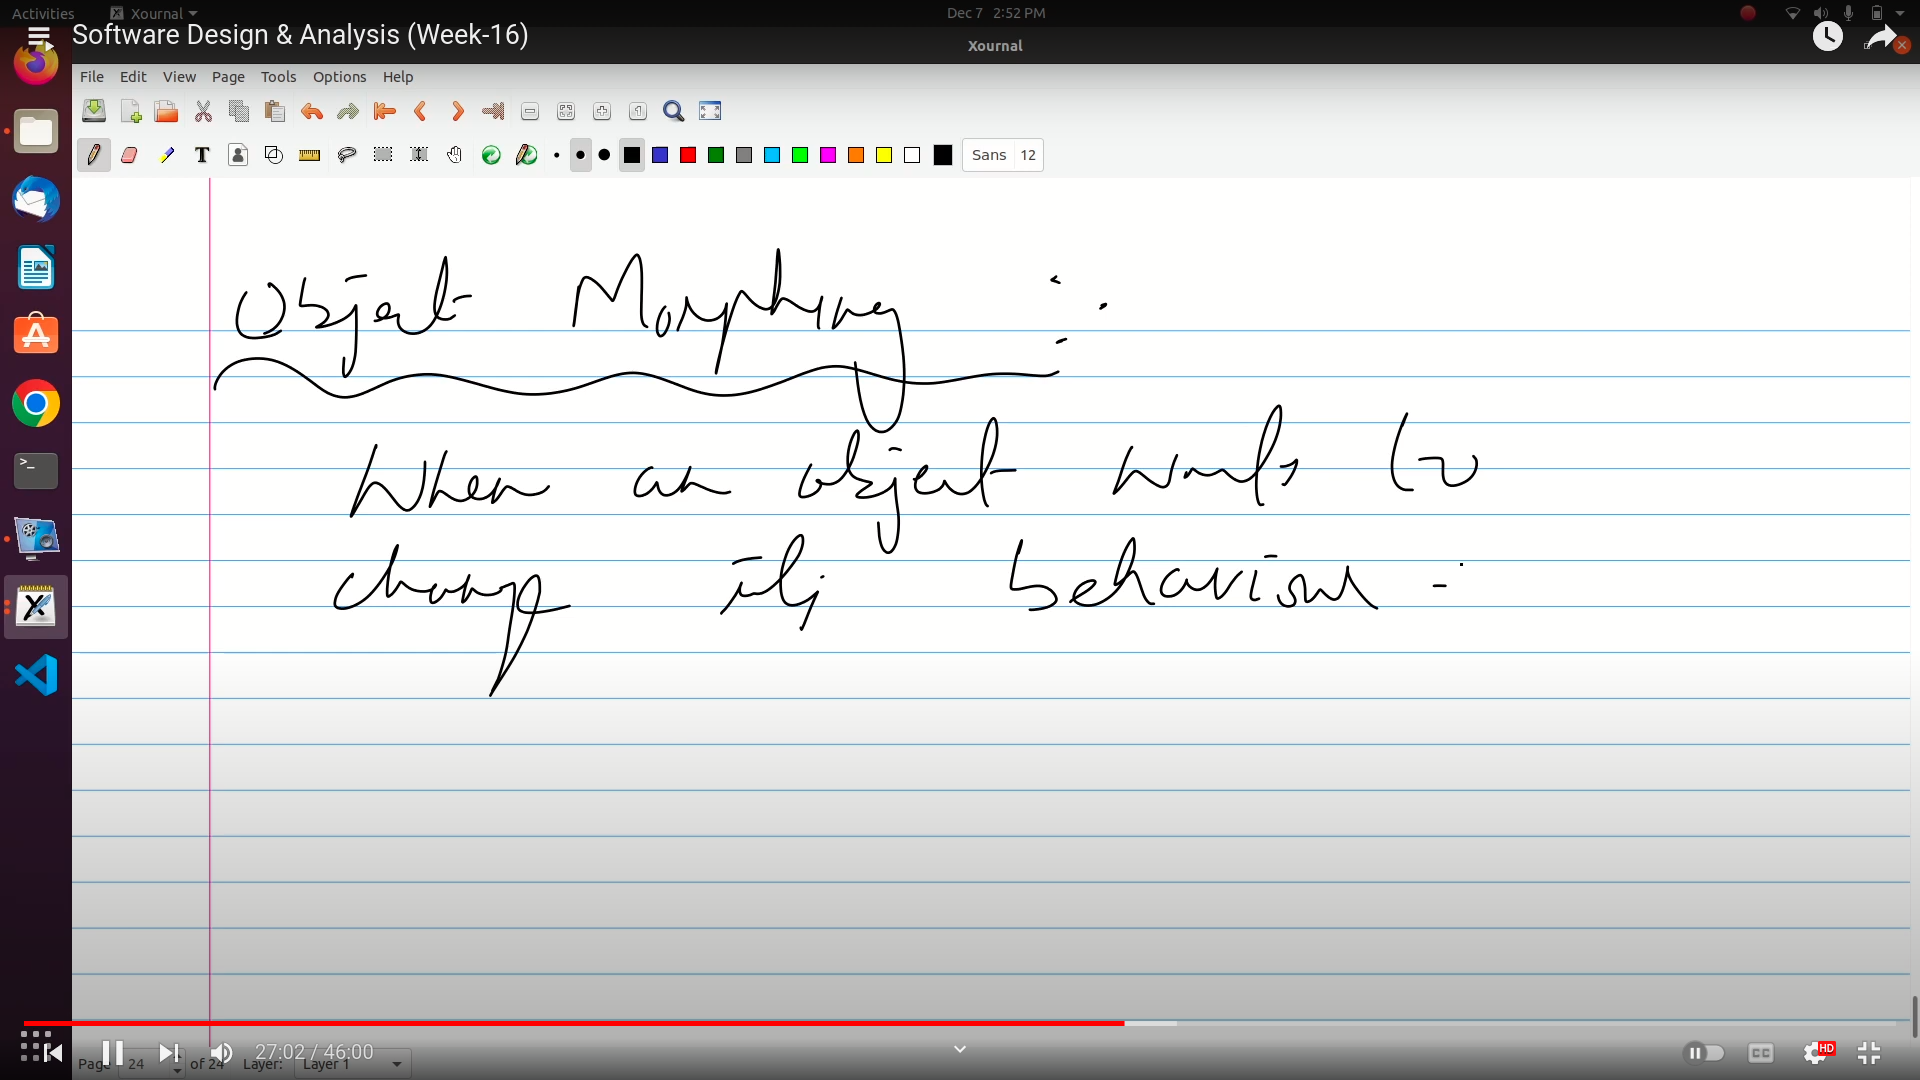 Activities Xournal Dec 7 2:52 PM
Software Design & Analysis (Week-16)
Xournal
File Edit View Page Tools Options Help
T Sans 12
Object Morphing :-
When an object wants to
change its behaviour -
27:02 / 46:00
Page 24 of 24 Layer: Layer 1
CC HD